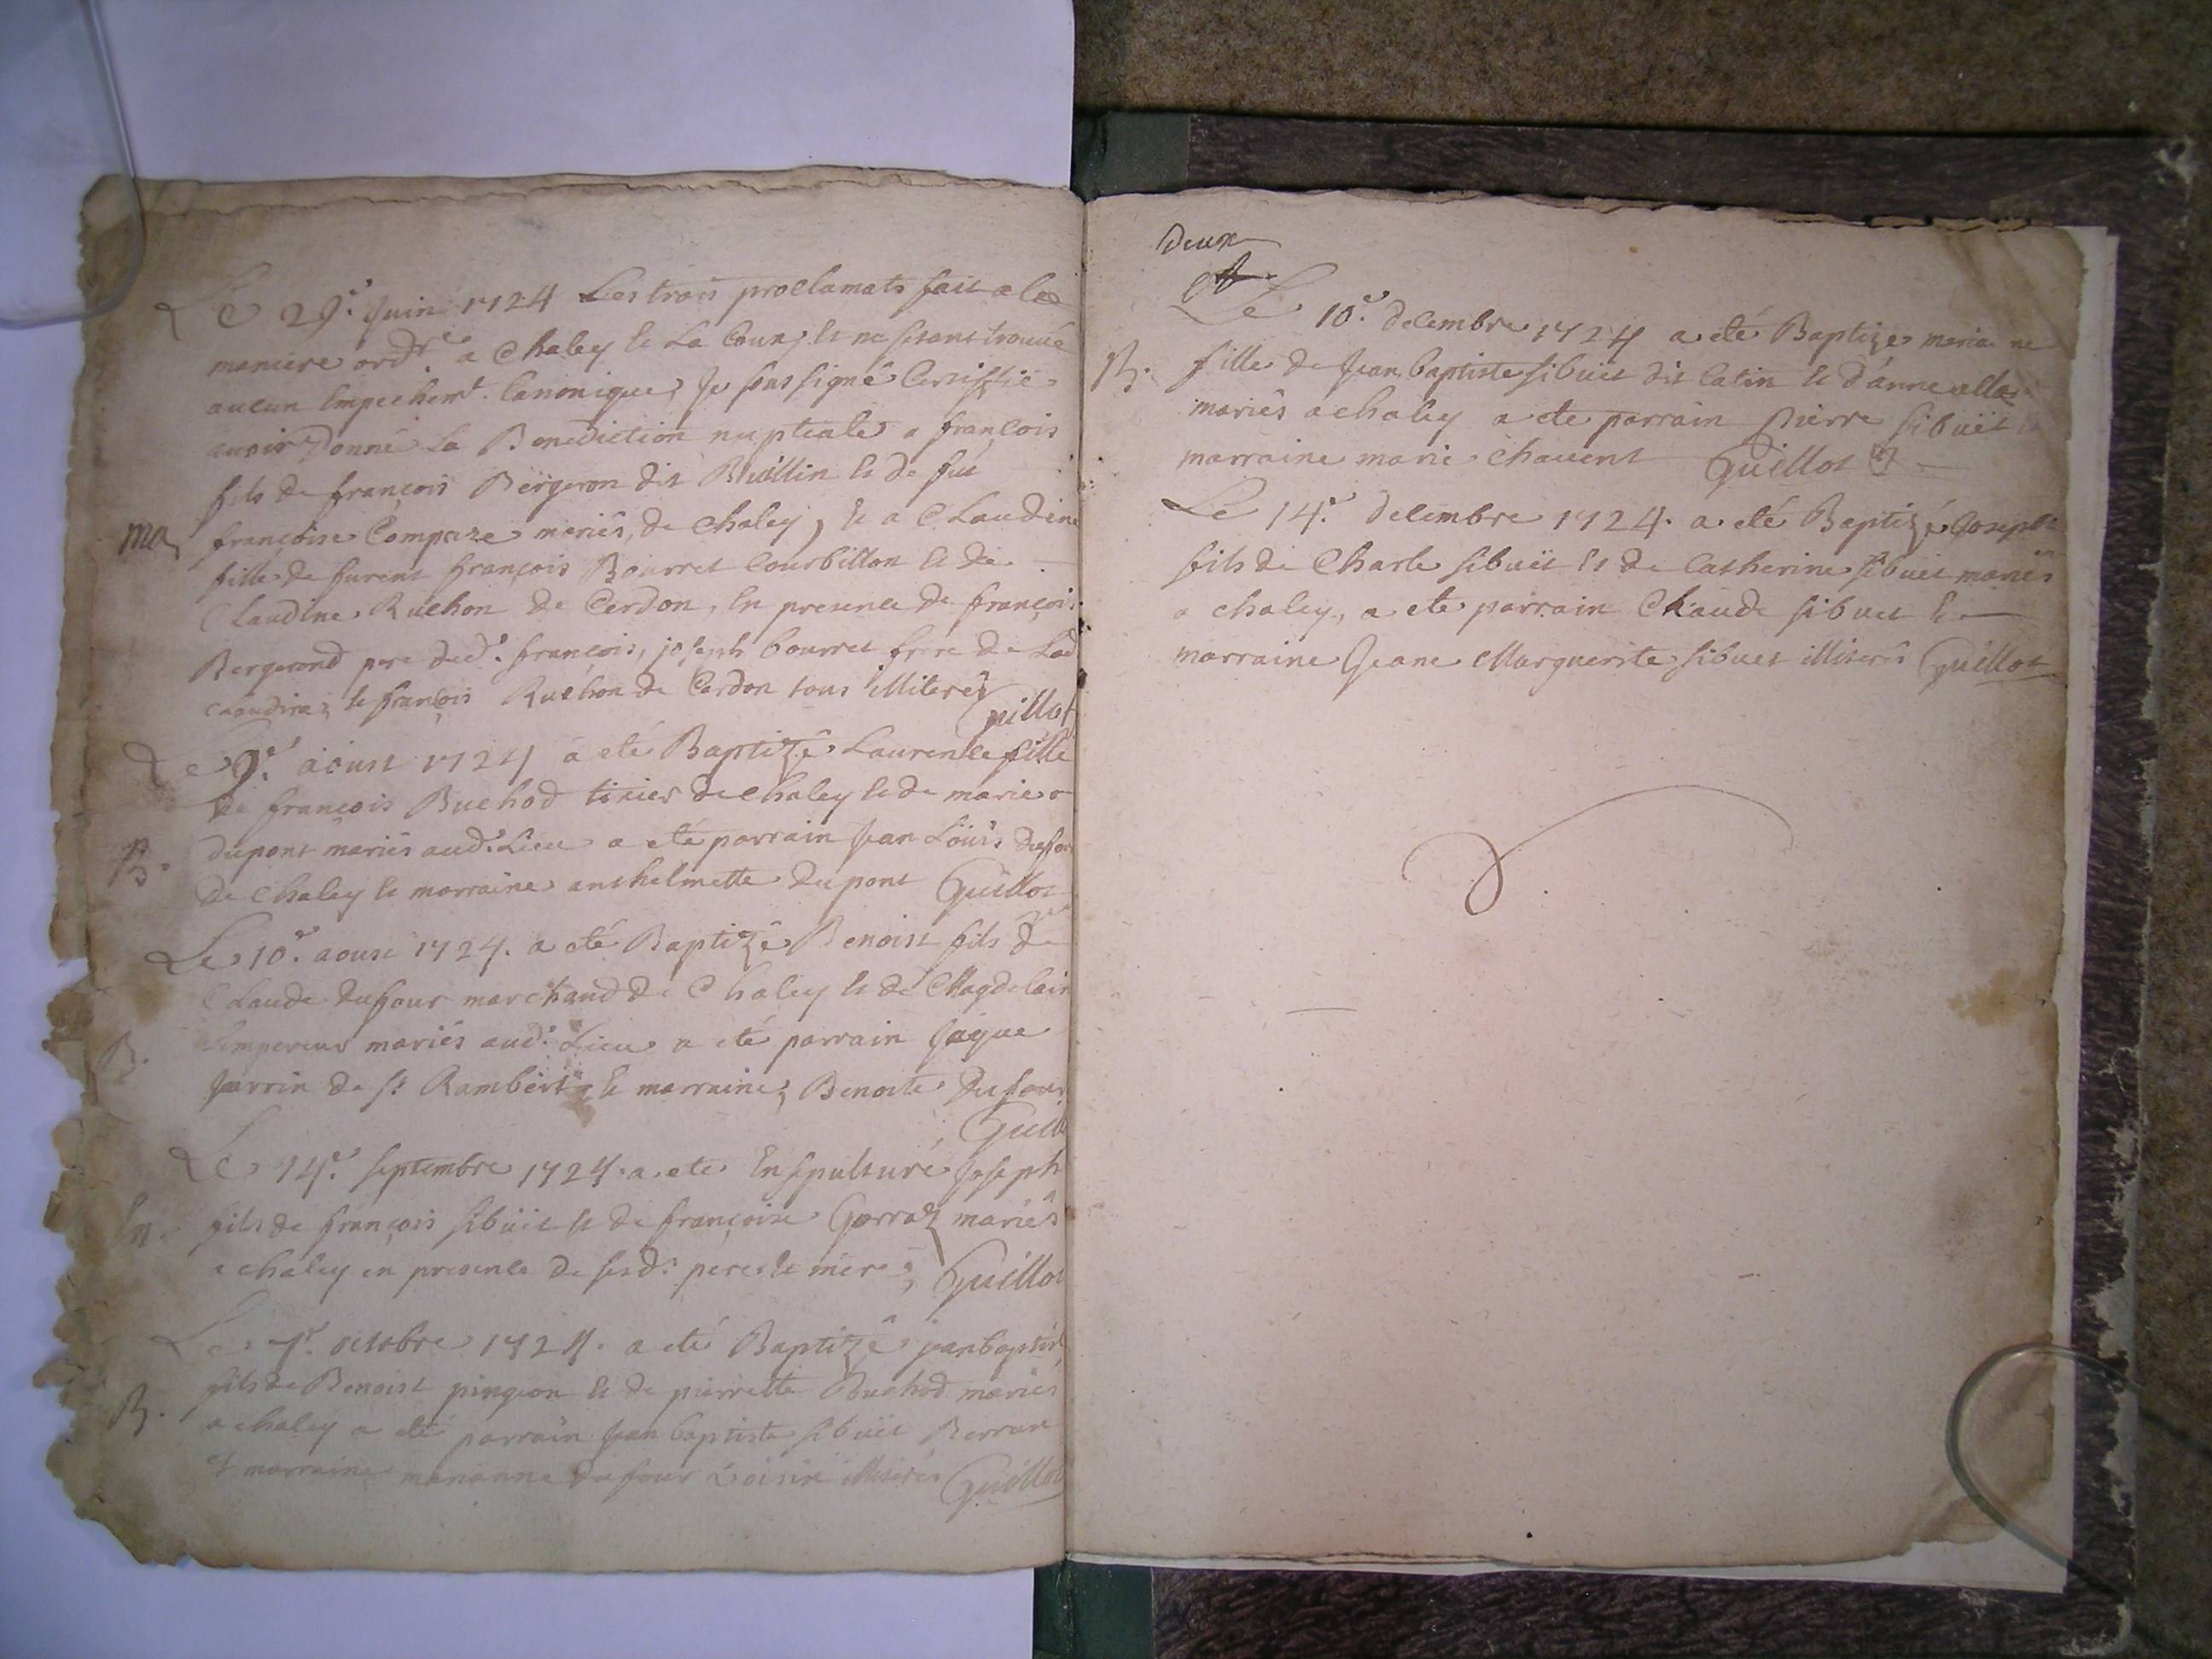 Le 29.e Juin 1724 Les trois proclamats fait a la
maniere ord.re a Chaley et La Cour, et ne s'etant trouvé
aucun Empechem.t Canonique, Je soussigné Certiffie
avoir Donné La Benediction nuptiale a françois
fils de françois Bergeron dit Buillin et de fut
ma françoise Compare mariés, de Chaley, et a Claudine
fille de furent françois Bourret Courbillon et de
Claudine Ruchon de Cerdon, En presence de françois
Bergerond pere dud.t françois, joseph bourret frere de Lad
Claudine, et françois Ruchon de Cerdon tous illiterés
Guillot
Le 9.e aoust 1724 a eté Baptizé Laurence fille
de françois Buchod tixier de Chaley et de marie
B. dupont mariés aud. Lieu a eté parrain Jean Loüis dufour
de Chaley et marraine anthelmette dupont Guillot
Le 10.e aoust 1724. a eté Baptizé Benoist fils de
Claude dufour marchand de Chaley et de Magdelain
B. Empereur mariés aud. Lieu a eté parrain Jaque
Jarrin de S.t Rambert, et marraine, Benoite Dufour
Guillo
Le 14.e septembre 1724. a ete Ensepulturé Joseph
En. fils de françois sibuit et de françoise Gorraz mariés
a chaley en presence de sesd. pere et mere, Guillot
Le 1.r octobre 1724. a eté Baptizé jean baptis
fils de Benoist pingeon et de pierrette Buchod mariés
B. a chaley a eté parrain Jean baptiste sibuit
et marraine marianne dufour illiterés Guillot
Deux
Le 10.e decembre 1724 a eté Baptize maria ne
B. fille de Jean baptiste sibuit dit Catin et d'anne
mariés a chaley a ete parrain Pierre sibuit
marraine marie chavent Guillot
Le 14.e decembre 1724. a eté Baptizé Joseph
fils de Charle sibuit et de Catherine sibuit mariés
a chaley, a ete parrain Claude sibuet et
marraine Jeane Marguerite sibuet illiterés Guillot